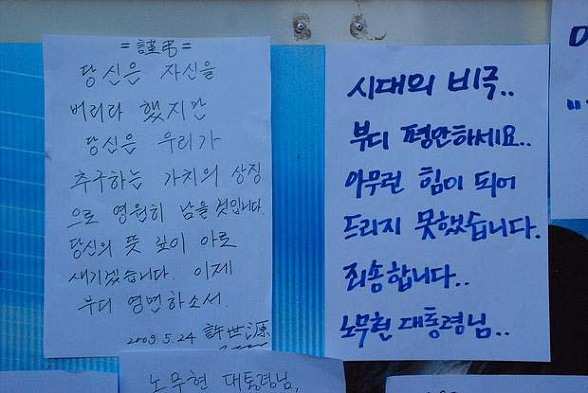 = 謹弔 =
당신은 자신을
버리라 했지만
당신은 우리가
추구하는 가치의 상징
으로 영원히 남을것입니다.
당신의 뜻 깊이 아로
새기겠습니다. 이제
부디 영면하소서.
2009.5.24 許世源
시대의 비극..
부디 평안하세요..
아무런 힘이 되어
드리지 못했습니다.
죄송합니다..
노무현 대통령님..
노무현 대통령님,